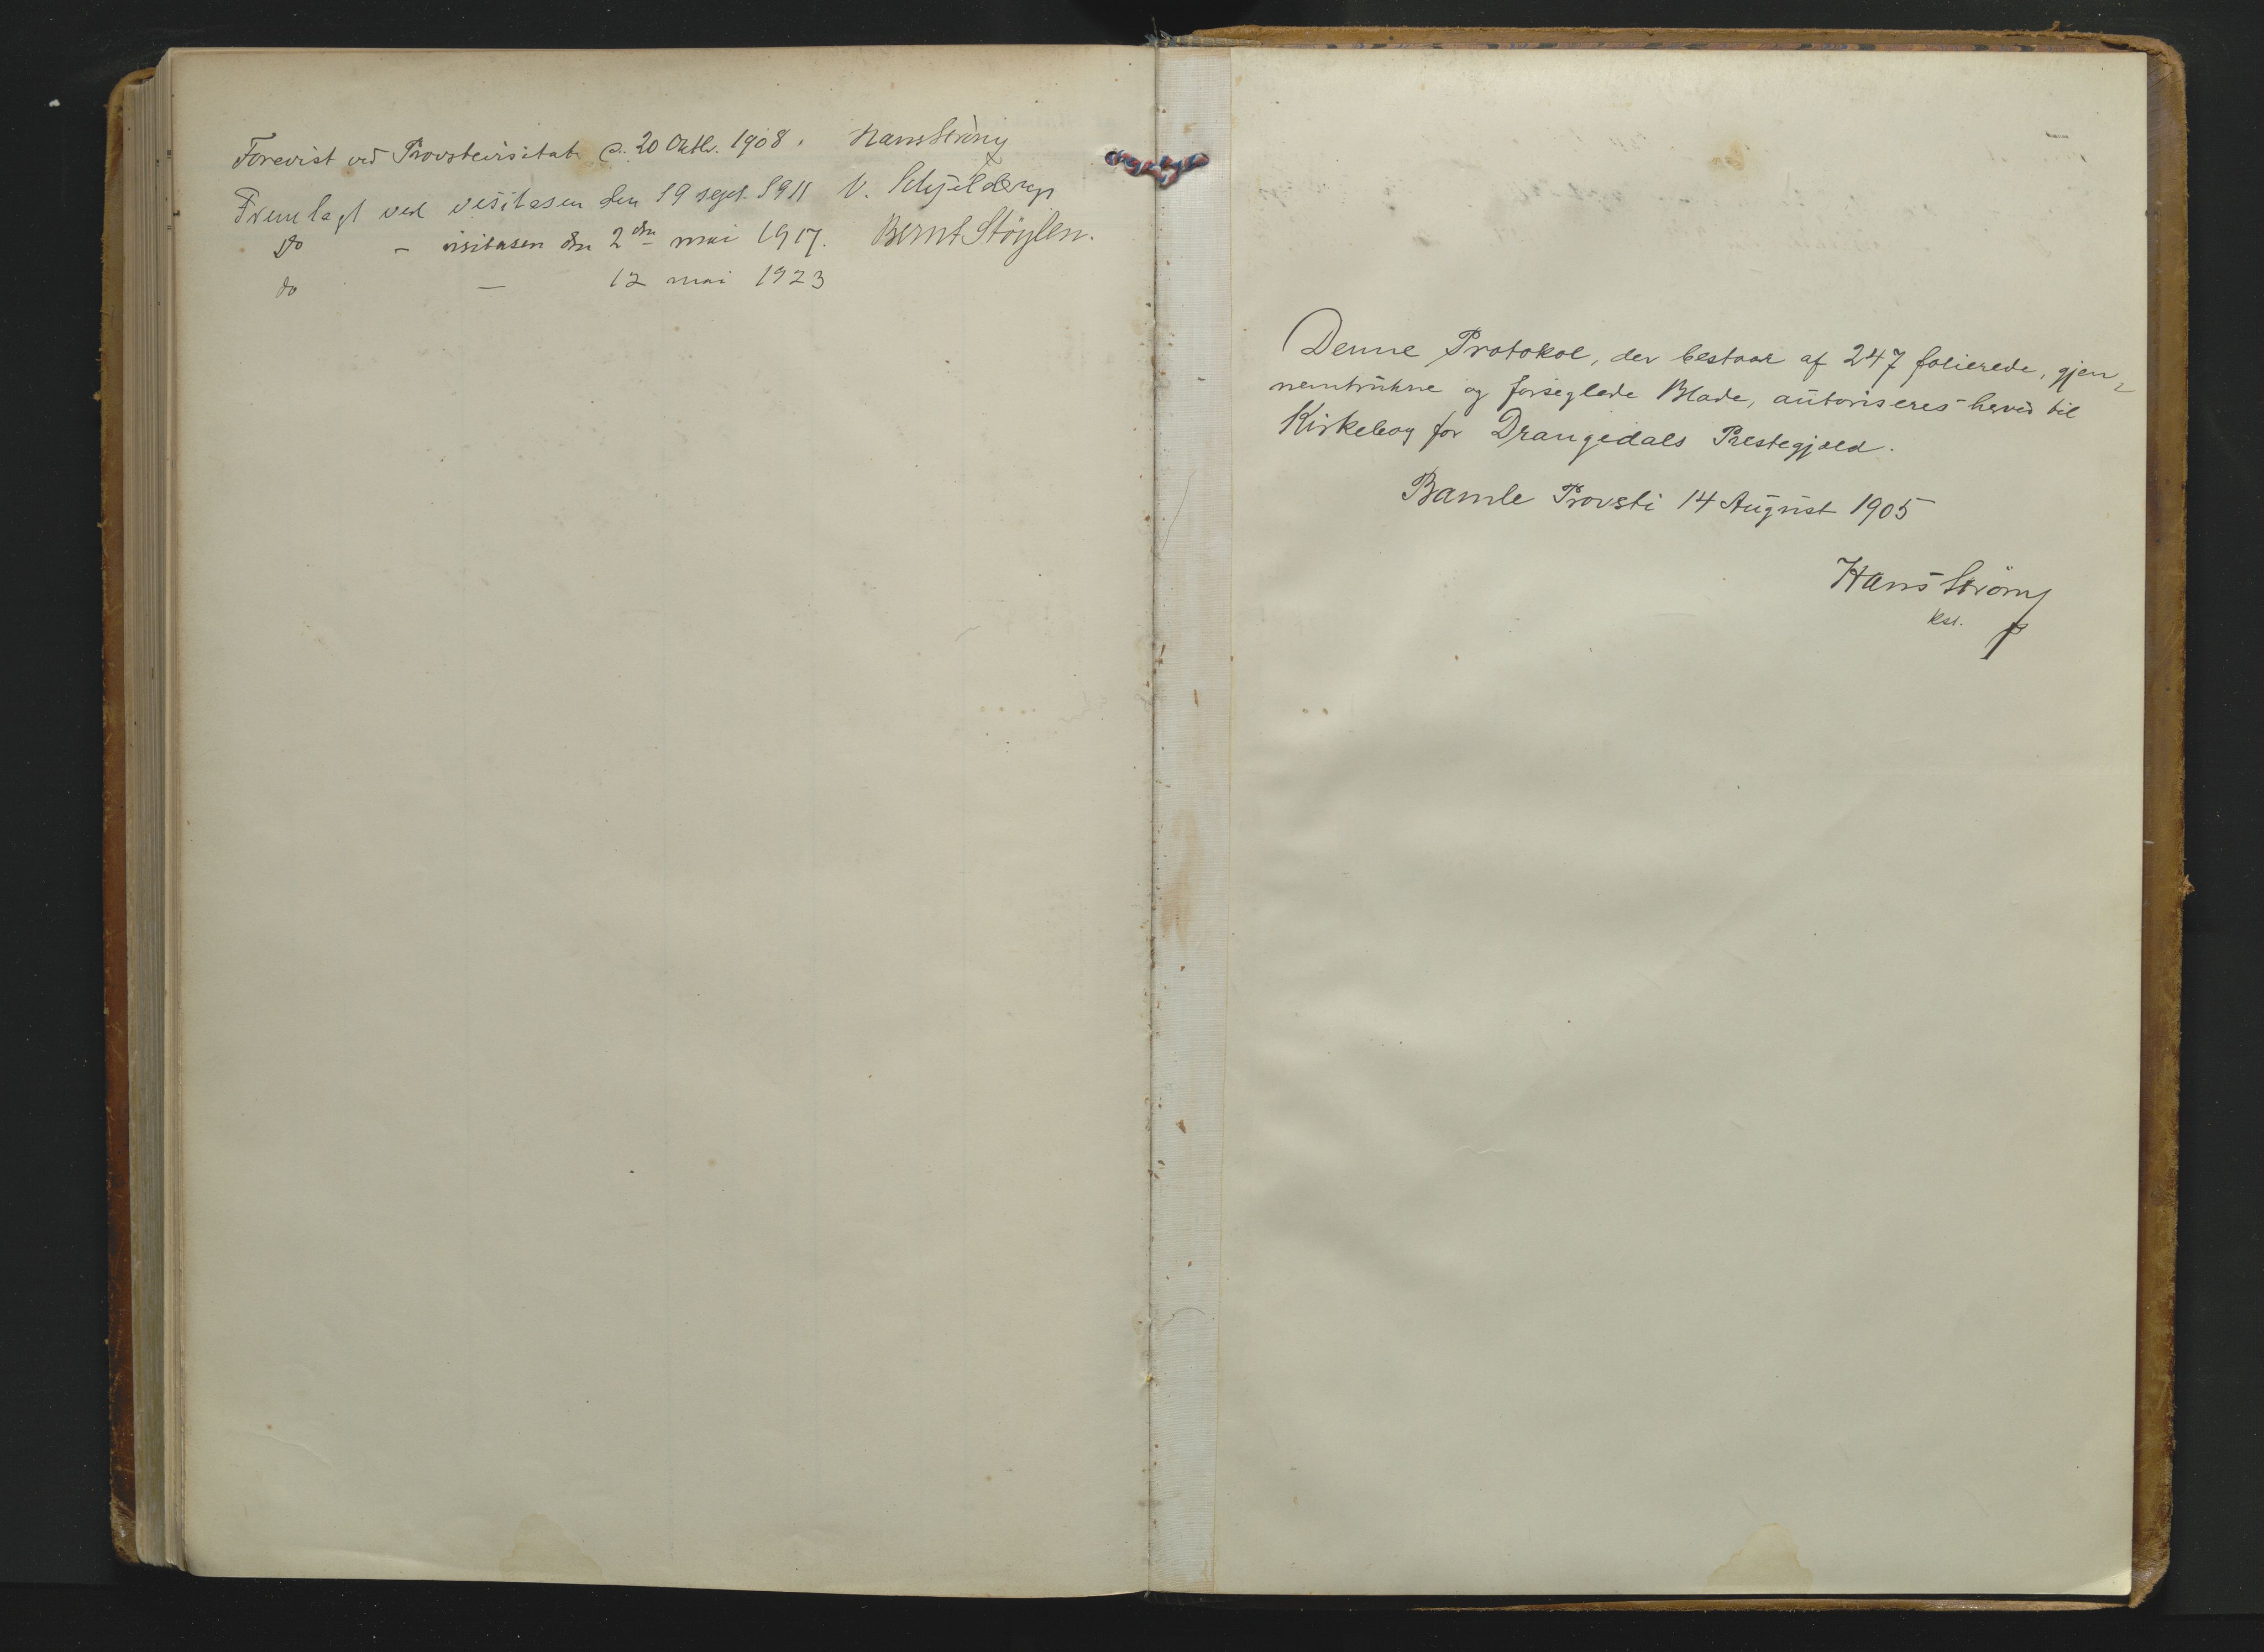 Forevist ved Provstevisitats d. 20 Oktbr. 1908. Hans Strøm
Fremlagt ved visitasen den 19 sept. 1911 V. Schjelderup
Do – visitasen den 2den mai 1917. Bernt Støylen.
do – 12 mai 1923
Denne Protokol, der bestaar af 247 folierede, gjen-
nemtrukne og forseglede Blade, autoriseres herved til
Kirkebog for Drangedals Prestegjæld.
Bamle Provsti 14 August 1905
Hans Strøm
kst.